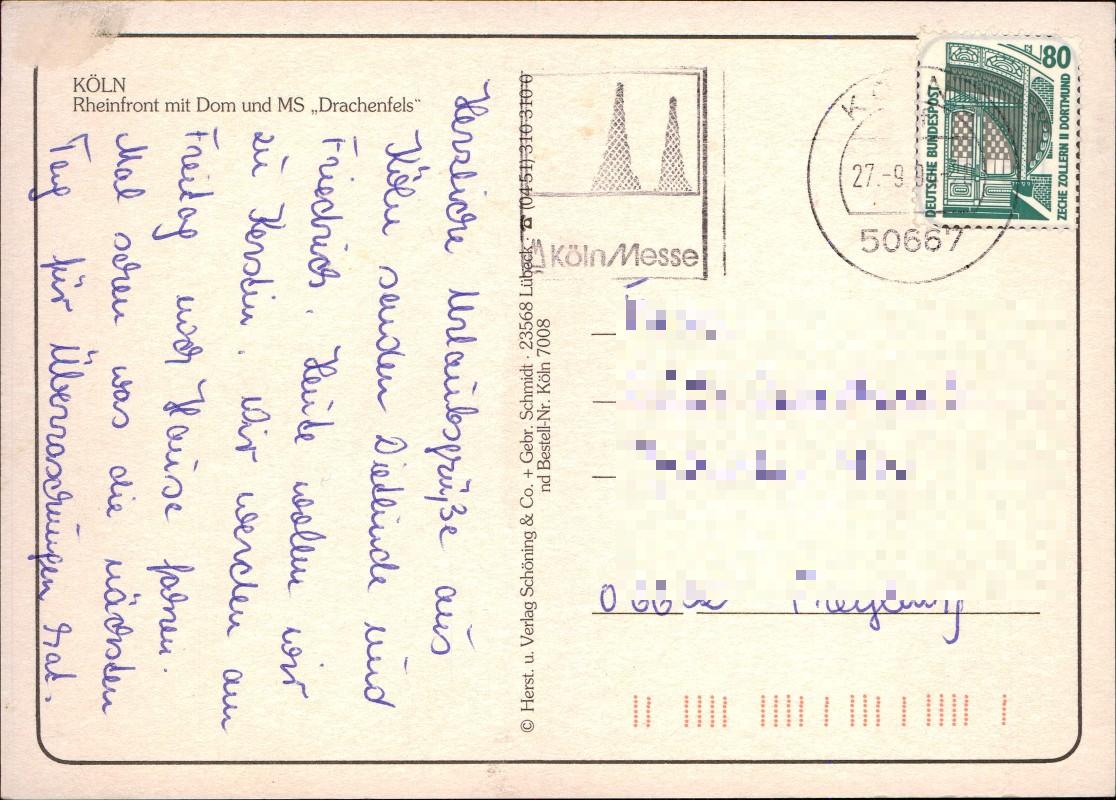 KÖLN
Rheinfront mit Dom und MS „Drachenfels“
Herzliche Urlaubsgrüße aus
Köln senden Dietlinde und
Friedrich. Heute wollen wir
zu Kerstin. Wir werden am
Freitag nach Hause fahren.
Mal sehen was die nächsten
Tag für Überraschungen hat.
© Herst. u. Verlag Schöning & Co. + Gebr. Schmidt · 23568 Lübeck · ☎ (0451) 310310 0
nd Bestell-Nr. Köln 7008
KölnMesse
27.-9.
50667
80
DEUTSCHE BUNDESPOST
ZECHE ZOLLERN II DORTMUND